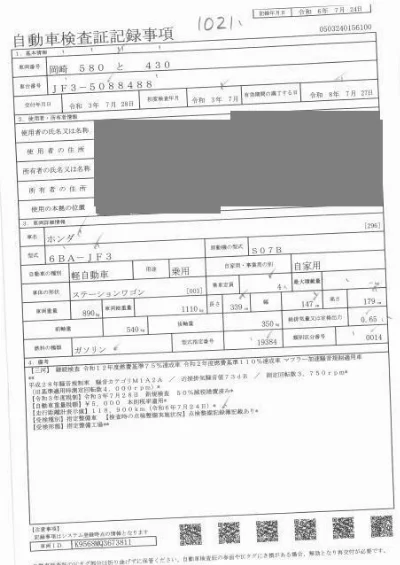 1021
自動車検査証記録事項
記録年月日 令和 6年 7月24日
0503240156100
1. 基本情報
車両番号 岡崎 580 と 430
車台番号 JF3-5088488
交付年月日 令和 3年 7月28日 初度検査年月 令和 3年 7月 有効期間の満了する日 令和 8年 7月27日
2. 使用者・所有者情報
使用者の氏名又は名称
使用者の住所
所有者の氏名又は名称
所有者の住所
使用の本拠の位置
3. 車両詳細情報
車名 ホンダ [296]
型式 6BA-JF3 原動機の型式 S07B
自動車の種別 軽自動車 用途 乗用 自家用・事業用の別 自家用
車体の形状 ステーションワゴン [003] 乗車定員 4人 最大積載量
車両重量 890kg 車両総重量 1110kg 長さ 339cm 幅 147cm 高さ 179cm
前軸重 540kg 後軸重 350kg 総排気量又は定格出力 0.65L
燃料の種類 ガソリン 型式指定番号 19384 類別区分番号 0014
4. 備考
[三河] 継続検査 令和12年度燃費基準75%達成車 令和2年度燃費基準110%達成車 マフラー加速騒音規制適用車
**
平成28年騒音規制車 騒音カテゴリM1A2A / 近接排気騒音値73dB / 測定回転数3,750rpm*
[自動車重量税額] ¥5,000 本則税率適用*
[走行距離計表示値] 118,900km (令和6年7月24日)*
[受検種別] 指定整備車 [検査時の点検整備実施状況] 点検整備記録簿記載あり*
[受検形態] 指定整備工場**
[注意事項]
記録事項はシステム登録時点の情報となります
車両ID K9568WQ3673811